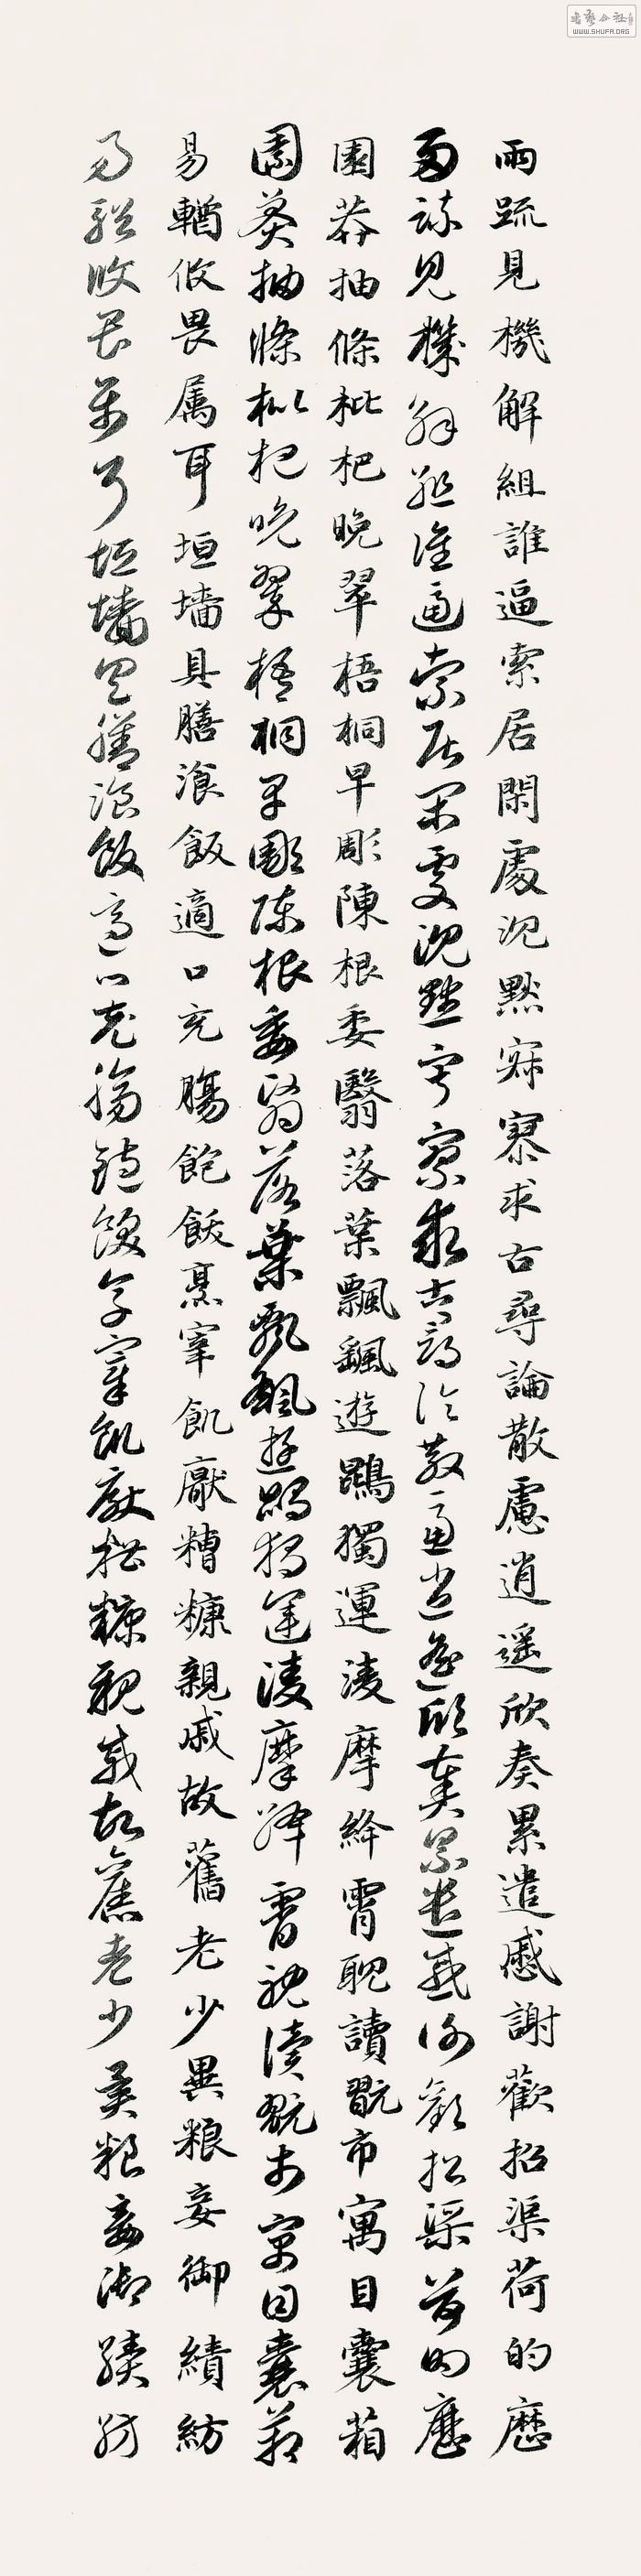 兩疏見機解組誰逼索居閑處沉默寂寥求古尋論散慮逍遥欣奏累遣慼謝歡招渠荷的歷
兩疏見機解組誰逼索居閑處沉默寂寥求古尋論散慮逍遥欣奏累遣慼謝歡招渠荷的歷
園莽抽條枇杷晚翠梧桐早彫陳根委翳落葉飄颻遊鵾獨運凌摩絳霄耽讀翫市寓目囊箱
園莽抽條枇杷晚翠梧桐早彫陳根委翳落葉飄颻遊鵾獨運凌摩絳霄耽讀翫市寓目囊箱
易輶攸畏属耳垣墻具膳湌飯適口充腸飽飫烹宰飢厭糟糠親戚故舊老少異粮妾御績紡
易輶攸畏属耳垣墻具膳湌飯適口充腸飽飫烹宰飢厭糟糠親戚故舊老少異粮妾御績紡
WWW.SHUFA.ORG